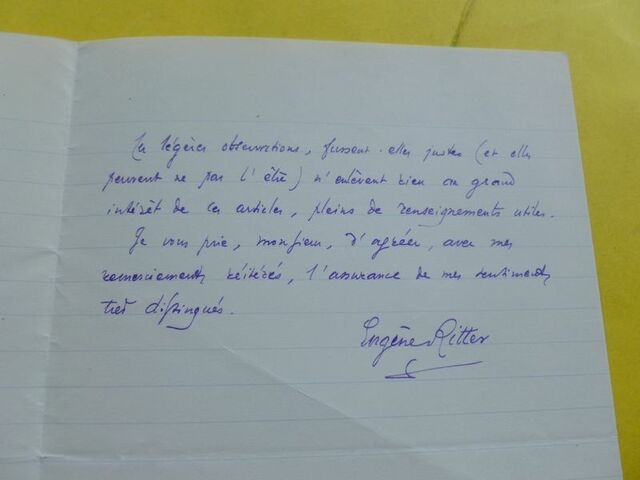 Ces légères observations, fussent-elles justes (et elles
peuvent ne pas l'être) n'enlèvent rien au grand
intérêt de ces articles, pleins de renseignements utiles.
Je vous prie, monsieur, d'agréer, avec mes
remerciements réitérés, l'assurance de mes sentiments
très distingués.
Eugène Ritter